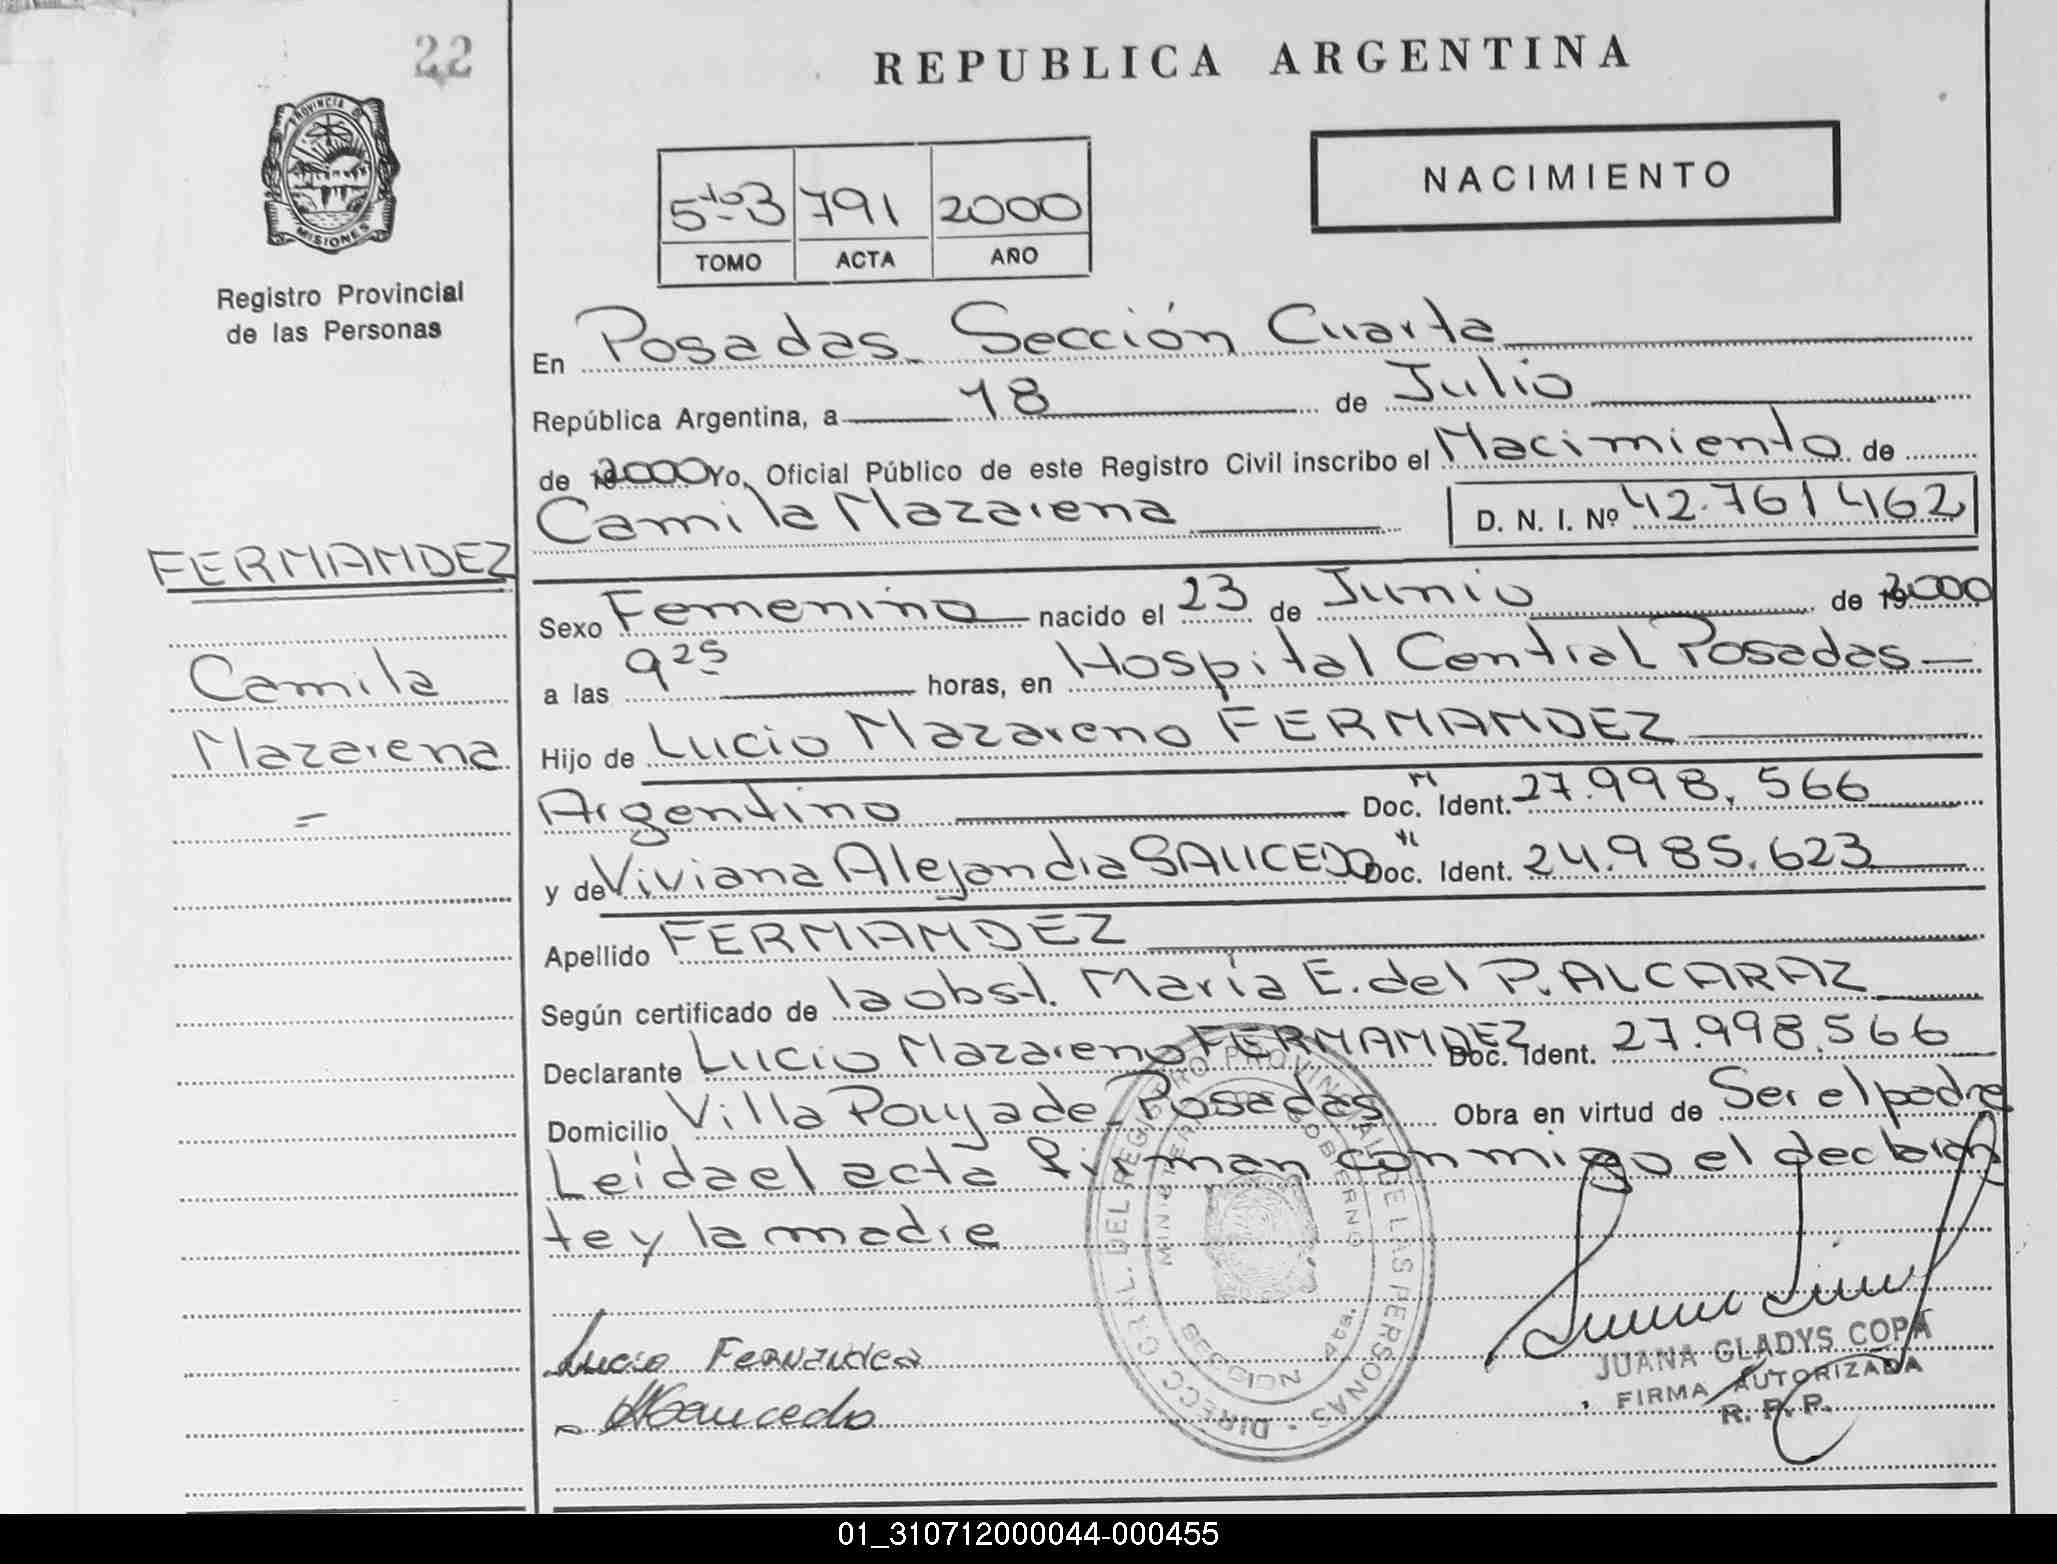 22
REPUBLICA ARGENTINA
PROVINCIA DE
MISIONES
Registro Provincial
de las Personas
5to 3 791 2000
TOMO ACTA AÑO
NACIMIENTO
En Posadas Sección Cuarta
República Argentina, a 18 de Julio
de 2000 Yo, Oficial Público de este Registro Civil inscribo el Nacimiento de
Camila Nazarena D. N. I. Nº 42.761462
FERNANDEZ
Camila
Nazarena
=
Sexo Femenino nacido el 23 de Junio de 2000
a las 9 25 horas, en Hospital Central Posadas
Hijo de Lucio Nazareno FERNANDEZ
Argentino Doc. N Ident. 27.998.566
y de Viviana Alejandra SAUCEDO Doc. N Ident. 24.985.623
Apellido FERNANDEZ
Según certificado de la obst. María E. del P. ALCARAZ
Declarante Lucio Nazareno FERNANDEZ Doc. Ident. 27.998.566
Domicilio Villa Poujade Posadas Obra en virtud de Ser el padre
Leida el acta firman conmigo el declaran
te y la madre
DIRECC. GRAL. DEL REGISTRO PROVINCIAL DE LAS PERSONAS
Lucio Fernandez
Saucedo
JUANA GLADYS COPA
FIRMA AUTORIZADA
R. P. P.
01_310712000044-000455